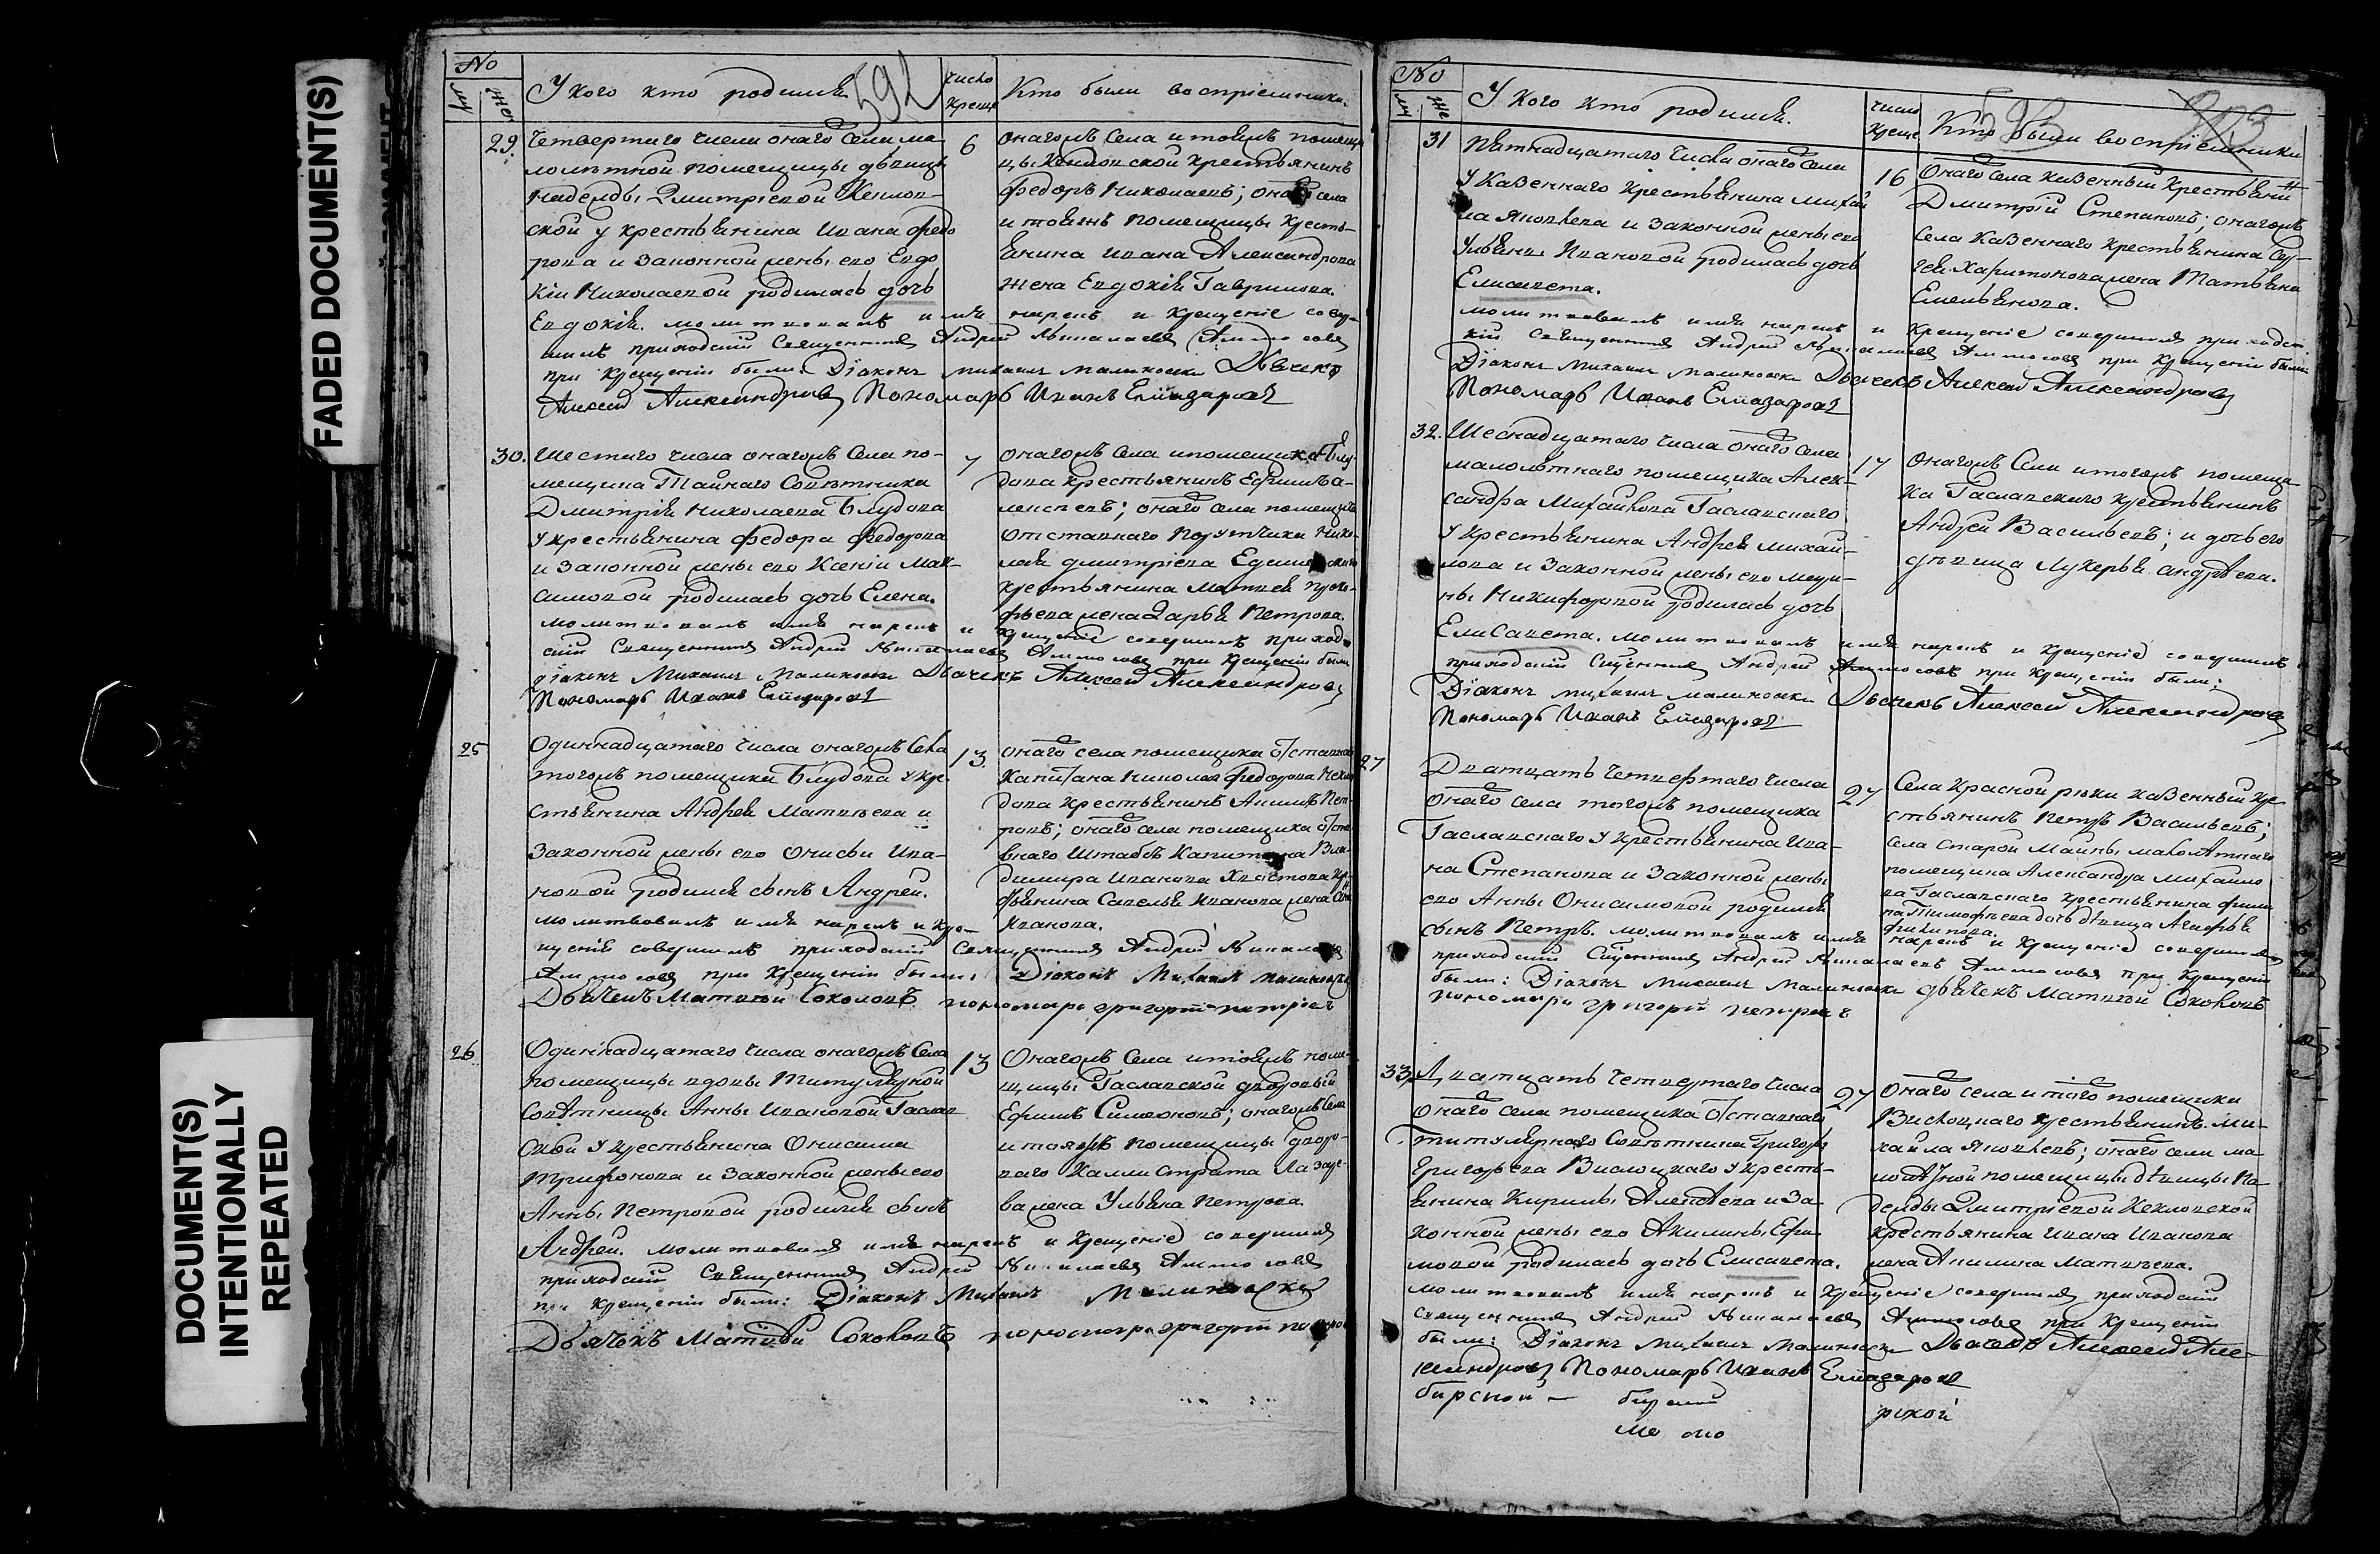 FADED DOCUMENT(S)
DOCUMENT(S)
INTENTIONALLY
REPEATED
No
му же
У кого кто родился
592
число
креще
Кто были воспріемники.
29.
Четвертаго числа онаго села ма
лолѣтной помещицы дѣвицы
Надежды Дмитріевой
ской у крестьянина Ивана Федо
рова и законной жены его Евдо
кіи Николаевой родилась дочь
Евдокія. молитвовалъ имя нарекъ и крещеніе совер
шилъ приходскій Священникъ Андрей Николаевъ Аммосовъ
при крещеніи были: Діаконъ Михаилъ Малиновски Дьячекъ
Алексей Александровъ Пономарь Иванъ Елиазаровъ
6
онагожъ села и тояжъ помещи
цы крестьянинъ
Федоръ Николаевъ; онаго села
и тояжъ помещицы кресть
янина Ивана Александрова
жена Евдокія Гаврилова.
30.
Шестаго числа онагожъ села по
мещика Тайнаго Советника
Дмитрія Николаева Блудова
у крестьянина Федора Федорова
и законной жены его Ксеніи Мак
симовой родилась дочь Елена.
молитвовалъ имя нарекъ и крещеніе совершилъ приход
скій Священникъ Андрей Николаевъ Аммосовъ при крещеніи были
діаконъ Михаилъ Малиновски Дьячекъ Алексей Александровъ
Пономарь Иванъ Елиазаровъ
7
онагожъ села и помещика Блу
дова крестьянинъ Ефимъ А
лексеевъ; онаго села помещика
отставнаго Порутчика Нико
лая Дмитріева
крестьянина Матвея Проко
фьева жена Дарья Петрова.
25
Одиннадцатаго числа онагожъ села
тогожъ помещика Блудова у кре
стьянина Андрея Матвѣева и
законной жены его Онисьи Ива
новой родился сынъ Андрей.
молитвовалъ имя нарекъ и кре
щеніе совершилъ приходскій Священникъ Андрей Николаевъ
Аммосовъ при крещеніи были: Діаконъ Михаилъ Малиновски
Дьячекъ Матвѣй Соколовъ пономарь григорій петровъ
13.
онаго села помещика отставнаго
Капитана Николая Федорова
дова крестьянинъ Акимъ Пет
ровъ; онаго села помещика отста
внаго Штабсъ Капитана Вла
димира Иванова
янина Савелья Иванова жена
Иванова.
26
Одиннадцатаго числа онагожъ села
помещицы вдовы Титулярной
Совѣтницы Анны Ивановой Гаслав
ской у крестьянина Онисима
Трифонова и законной жены его
Анны Петровой родился сынъ
Андрей. молитвовалъ имя нарекъ и крещеніе совершилъ
приходскій Священникъ Андрей Николаевъ Аммосовъ
при крещеніи были: Діаконъ Михаилъ Малиновски
Дьячекъ Матвѣй Соколовъ пономарь григорій
13
Онагожъ села и тояжъ поме
щицы Гаславской дворовый
Ефимъ Симеоновъ; онагожъ села
и тояжъ помещицы дворо
ваго Каллистрата Лазаре
ва жена Ульяна Петрова.
No
му же
У кого кто родился.
число
креще
593
Кто были воспріемники
31
Пятнадцатаго числа онаго села
у казеннаго крестьянина Михай
ла Яковлева и законной жены его
Ульяны Ивановой родилась дочь
Елисавета.
молитвовалъ имя нарекъ и крещеніе совершилъ приходс
кій Священникъ Андрей Николаевъ Аммосовъ при крещеніи были
Діаконъ Михаилъ Малиновски Дьячекъ Алексей Александровъ
Пономарь Иванъ Елиазаровъ
16
Онаго села казенный крестьянинъ
Дмитрій Степановъ; онагожъ
села казеннаго крестьянина Сер
гея Харитонова жена Татьяна
Емельянова.
32.
Шеснадцатаго числа онаго села
малолѣтнаго помещика Алек
сандра Михайлова Гаславскаго
у крестьянина Андрея Михай
лова и законной жены его
ны Никифоровой родилась дочь
Елисавета. молитвовалъ имя нарекъ и крещеніе совершилъ
приходскій Священникъ Андрей Аммосовъ при крещеніи были:
Діаконъ Михаилъ Малиновски Дьячекъ Алексей Александровъ
Пономарь Иванъ Елиазаровъ
17
Онагожъ села и тогожъ помещи
ка Гаславскаго крестьянинъ
Андрей Васильевъ; и дочь его
дѣвица Лукерья Андрѣева.
27
Дватцать четвертаго числа
онаго села тогожъ помещика
Гаславскаго у крестьянина Ива
на Степанова и законной жены
его Анны Онисимовой родился
сынъ Петръ. молитвовалъ имя нарекъ и крещеніе совершилъ
приходскій Священникъ Андрей Николаевъ Аммосовъ при крещеніи
были: Діаконъ Михаилъ Малиновски дьячекъ Матвѣй Соколовъ
пономарь григорій петровъ
27
Села Красной рѣки казенный кре
стьянинъ Петръ Васильевъ;
села Старой Маины малолѣтнаго
помещика Александра Михайло
ва Гаславскаго крестьянина Филип
па Тимофѣева дочь дѣвица Агафья
Филипова.
33.
Дватцать четвертаго числа
онаго села помещика отставнаго
титулярнаго Совѣтника Григорья
Григорьева Вислоцкаго у кресть
янина Кирилы Алексѣева и за
конной жены его Акилины Ефи
мовой родилась дочь Елисавета.
молитвовалъ имя нарекъ и крещеніе совершилъ приходскій
священникъ Андрей Николаевъ Аммосовъ при крещеніи
были: Діаконъ Михаилъ Малиновски Дьячекъ Алексей Але
ксандровъ Пономарь Иванъ Елиазаровъ
27
онаго села и того помещика
Вислоцкаго крестьянинъ Ми
хайла Яковлевъ; онаго села ма
лолѣтной помещицы дѣвицы На
дежды Дмитріевой
крестьянина Ивана Иванова
жена Акилина Матвѣева.